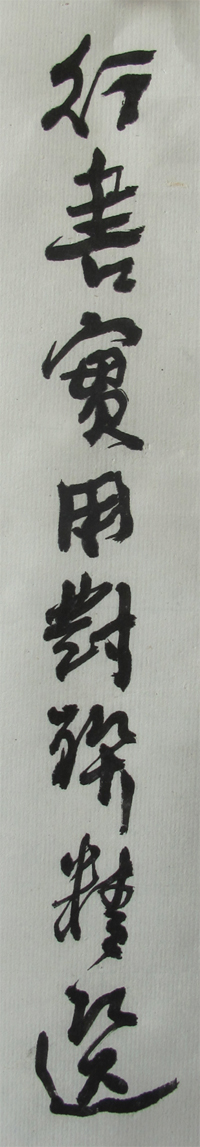 行書實用對聯精選